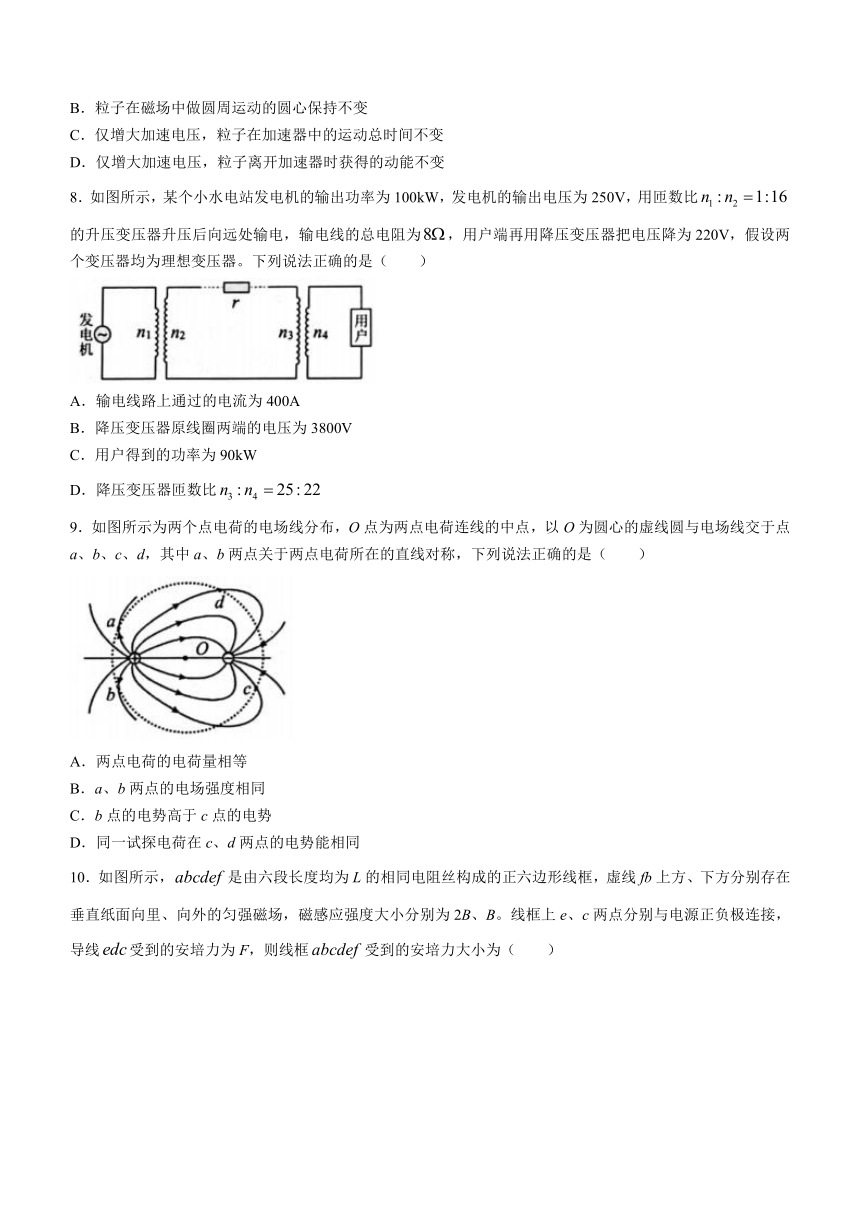 B．粒子在磁场中做圆周运动的圆心保持不变
C．仅增大加速电压，粒子在加速器中的运动总时间不变
D．仅增大加速电压，粒子离开加速器时获得的动能不变
8．如图所示，某个小水电站发电机的输出功率为100kW，发电机的输出电压为250V，用匝数比n₁:n₂=1:16
的升压变压器升压后向远处输电，输电线的总电阻为8Ω，用户端再用降压变压器把电压降为220V，假设两
个变压器均为理想变压器。下列说法正确的是（　　）
发电机 n₁ n₂ r n₃ n₄ 用户
A．输电线路上通过的电流为400A
B．降压变压器原线圈两端的电压为3800V
C．用户得到的功率为90kW
D．降压变压器匝数比n₃:n₄=25:22
9．如图所示为两个点电荷的电场线分布，O点为两点电荷连线的中点，以O为圆心的虚线圆与电场线交于点
a、b、c、d，其中a、b两点关于两点电荷所在的直线对称，下列说法正确的是（　　）
d
a
O
b
c
A．两点电荷的电荷量相等
B．a、b两点的电场强度相同
C．b点的电势高于c点的电势
D．同一试探电荷在c、d两点的电势能相同
10．如图所示，abcdef是由六段长度均为L的相同电阻丝构成的正六边形线框，虚线fb上方、下方分别存在
垂直纸面向里、向外的匀强磁场，磁感应强度大小分别为2B、B。线框上e、c两点分别与电源正负极连接，
导线edc受到的安培力为F，则线框abcdef受到的安培力大小为（　　）